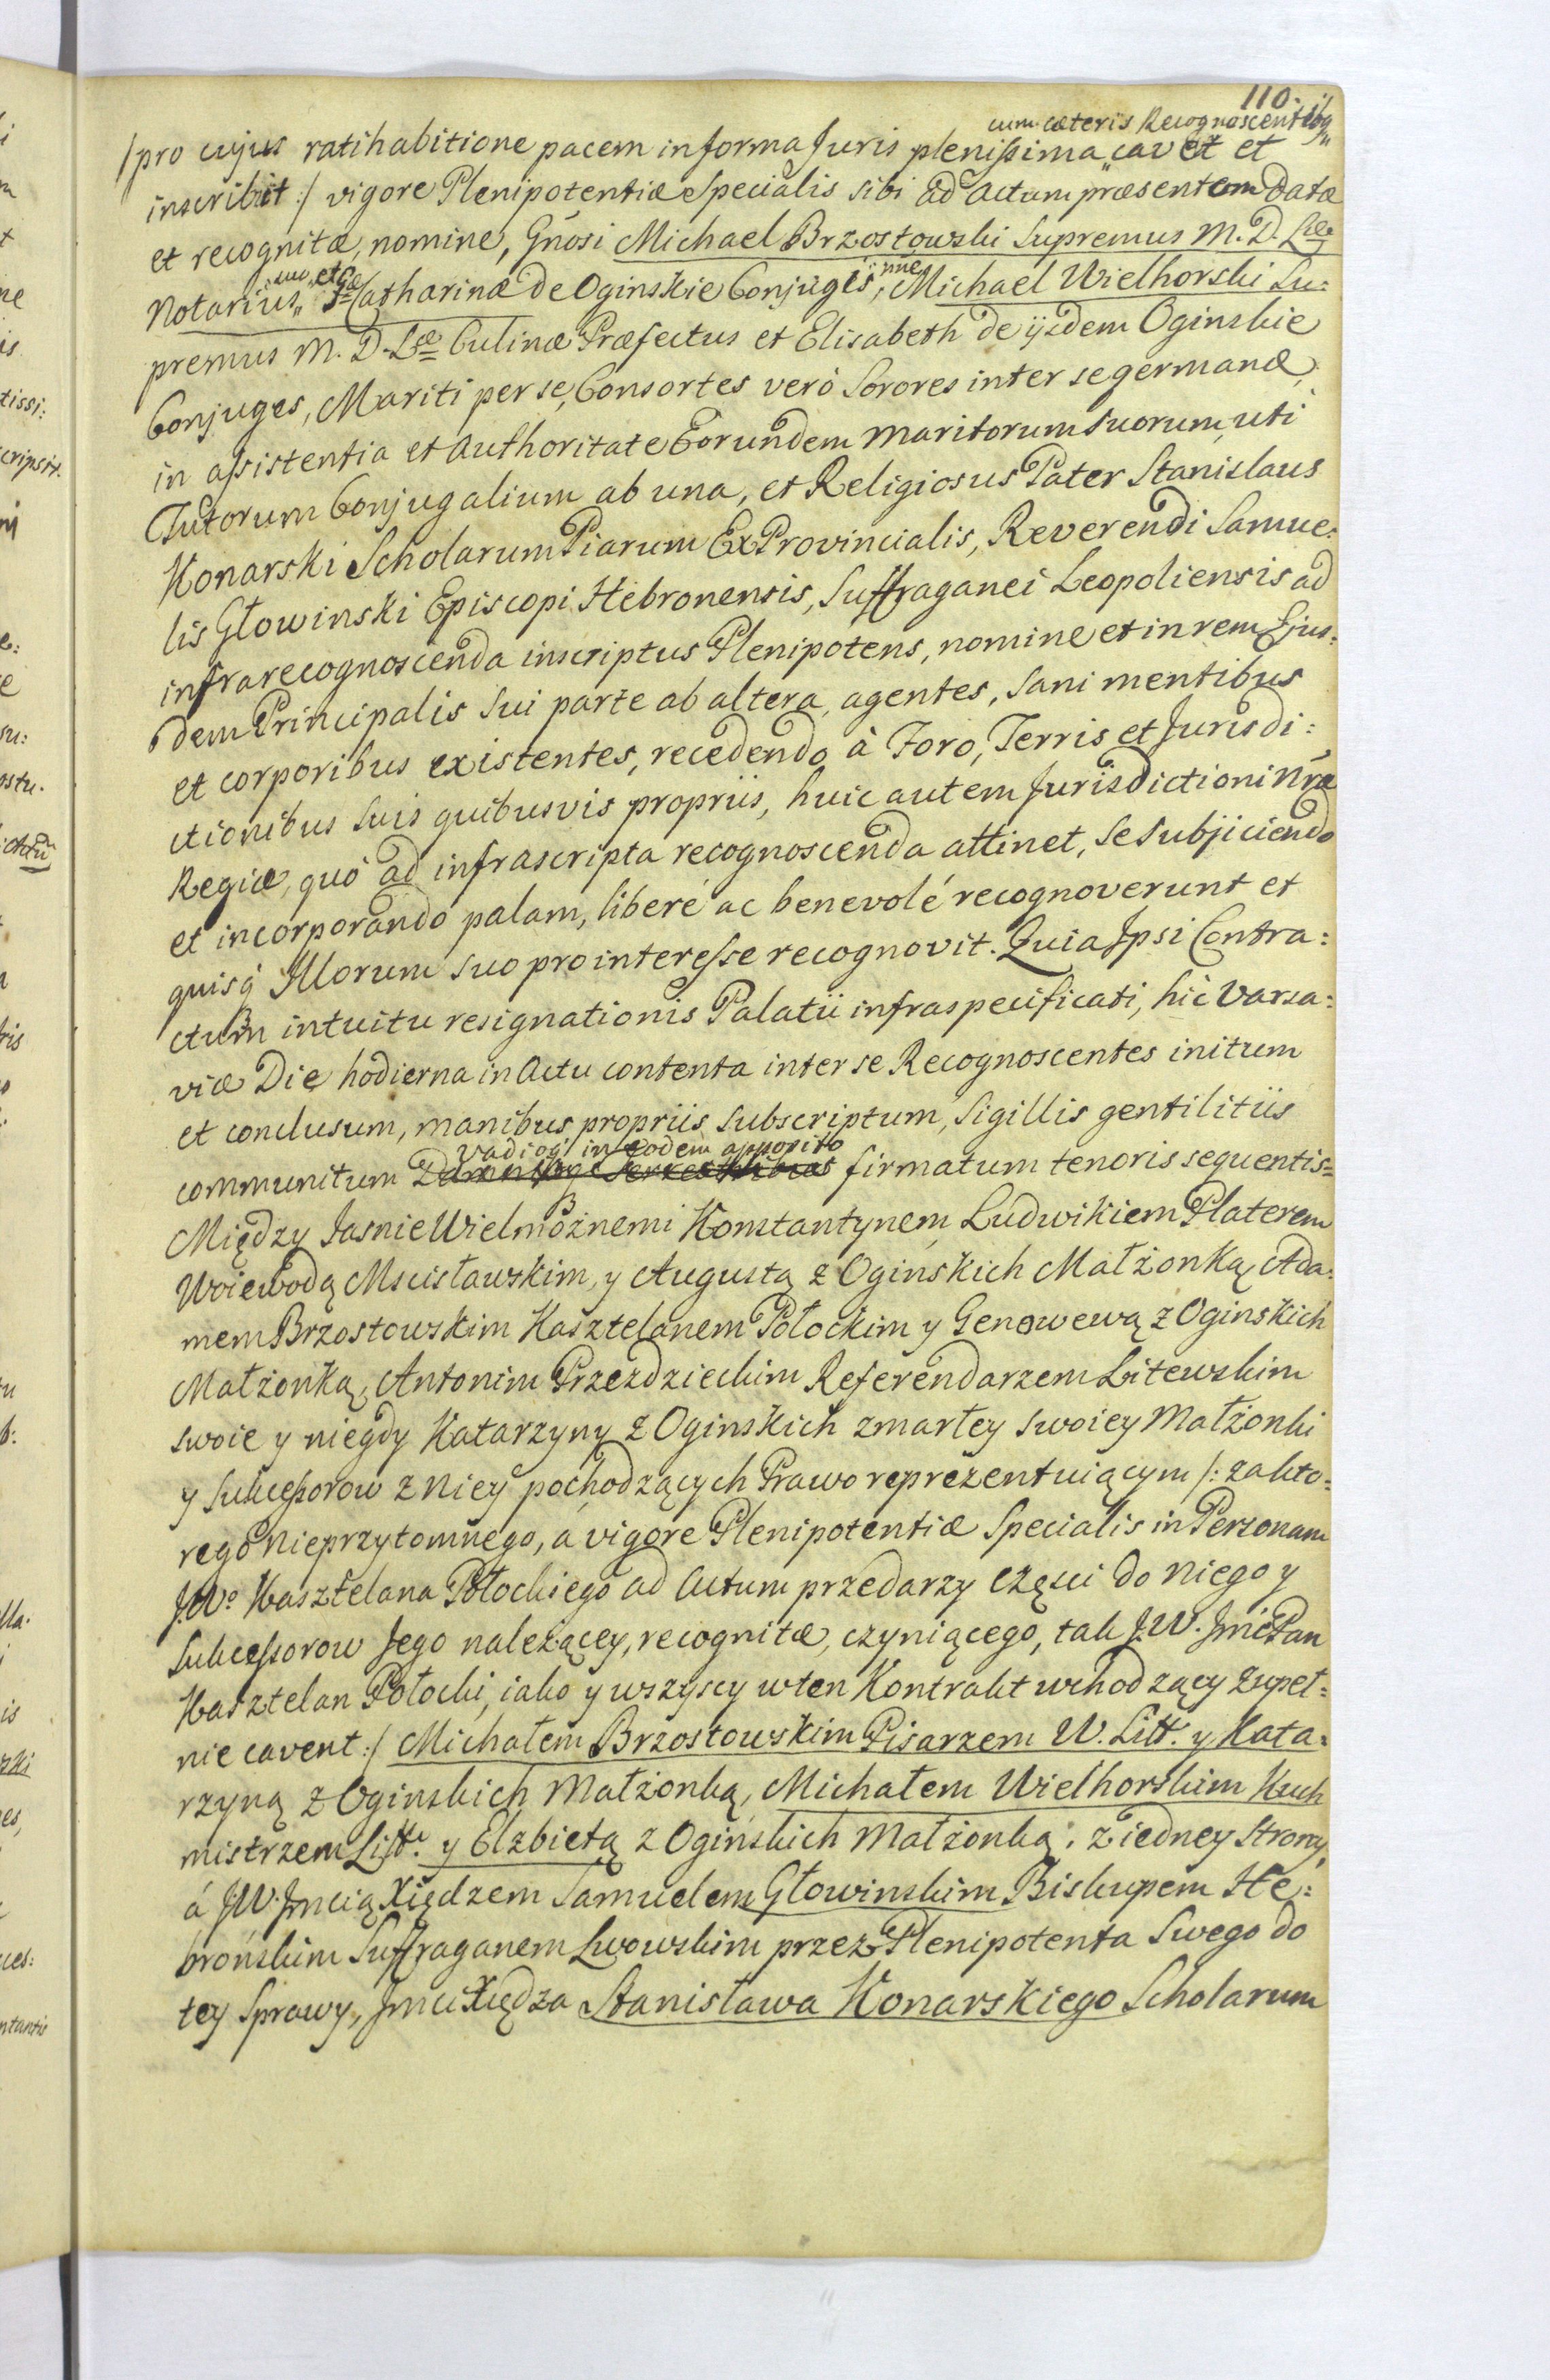 110.
cum cæteris Recognoscentibq
/pro cujus ratihabitione pacem in forma Juris plenissima „ cavet et
inscribit :/ vigore Plenipotentiæ Specialis sibi ad Actum præsentem datæ
et recognitæ, nomine, Gnosi Michael Brzostowski Supremus M. D. Læ
Notarius „ Catharina De Oginskie Conjuges, nne Michael Wielhorski Su=
premus M. D. Læ Culinæ Præfectus et Elisabeth de ijsdem Oginskie
Conjuges, Mariti per se, Consortes verò Sorores inter se germanæ,
in assistentia et Authoritate Eorundem Maritorum suorum, uti
Tutorum Conjugalium ab una, et Religiosus Pater Stanislaus
Konarski Scholarum Piarum Ex Provincialis, Reverendi Samue=
lis Głowinski Episcopi Hebronensis, Suffraganei Leopoliensis ad
infrarecognoscenda inscriptus Plenipotens, nomine et in rem Ejus=
dem Principalis Sui parte ab altera, agentes, Sani mentibus
et corporibus existentes, recedendo à Foro, Terris et Jurisdi=
ctionibus Suis quibusvis propriis, huic autem Jurisdictioni Nræ
Regiæ, quò ad infrascripta recognoscenda attinet, Se subjiciendo
et incorporando palam, liberé ac benevolé recognoverunt et
quisq Illorum suo pro interesse recognovit. Quia Ipsi Contra=
ctum intuitu resignationis Palatii infraspecificati, hic Varsa=
viæ Die hodierna in Actu contenta inter se Recognoscentes initum
et conclusum, manibus propriis subscriptum, Sigillis gentilitiis
Vadioq in eodem apposito
communitum firmatum tenoris sequentis=
Między Jasnie Wielmożnemi Konstantynem Ludwikiem Platerem
Woiewodą Mscisławskim, y Augustą z Oginskich Małżonką, Ada=
mem Brzostowskim Kasztelanem Połockim y Genowewą z Oginskich
Małżonką, Antonim Przezdzieckim Referendarzem Litewskim
swoie y niegdy Katarzyny z Oginskich zmarłey swoiey Małżonki
y Sukcessorow z Niey pochodzących Prawo reprezentuiącym /: za kto=
rego nieprzytomnego, a vigore Plenipotentiæ Specialis in Personam
J.Wo Kasztelana Połockiego ad Actum przedarzy Części do Niego y
Sukcessorow Jego należącey, recognitæ, czyniącego, tak J.W. Jmć Pan
Kasztelan Połocki, iako y wszyscy w ten Kontrakt wchodzący zupeł=
nie cavent :/ Michałem Brzostowskim Pisarzem W. Litt. y Kata=
rzyną z Oginskich Małżonką, Michałem Wielhorskim Kuch
mistrzem Litt. y Elzbietą z Oginskich Małżonką, z iedney Strony,
á J.W. Jmcią Xiędzem Samuelem Głowinskim Biskupem He=
brońskim Suffraganem Lwowskim przez Plenipotenta Swego do
tey Sprawy, Jmci Xiędza Stanisława Konarskiego Scholarum